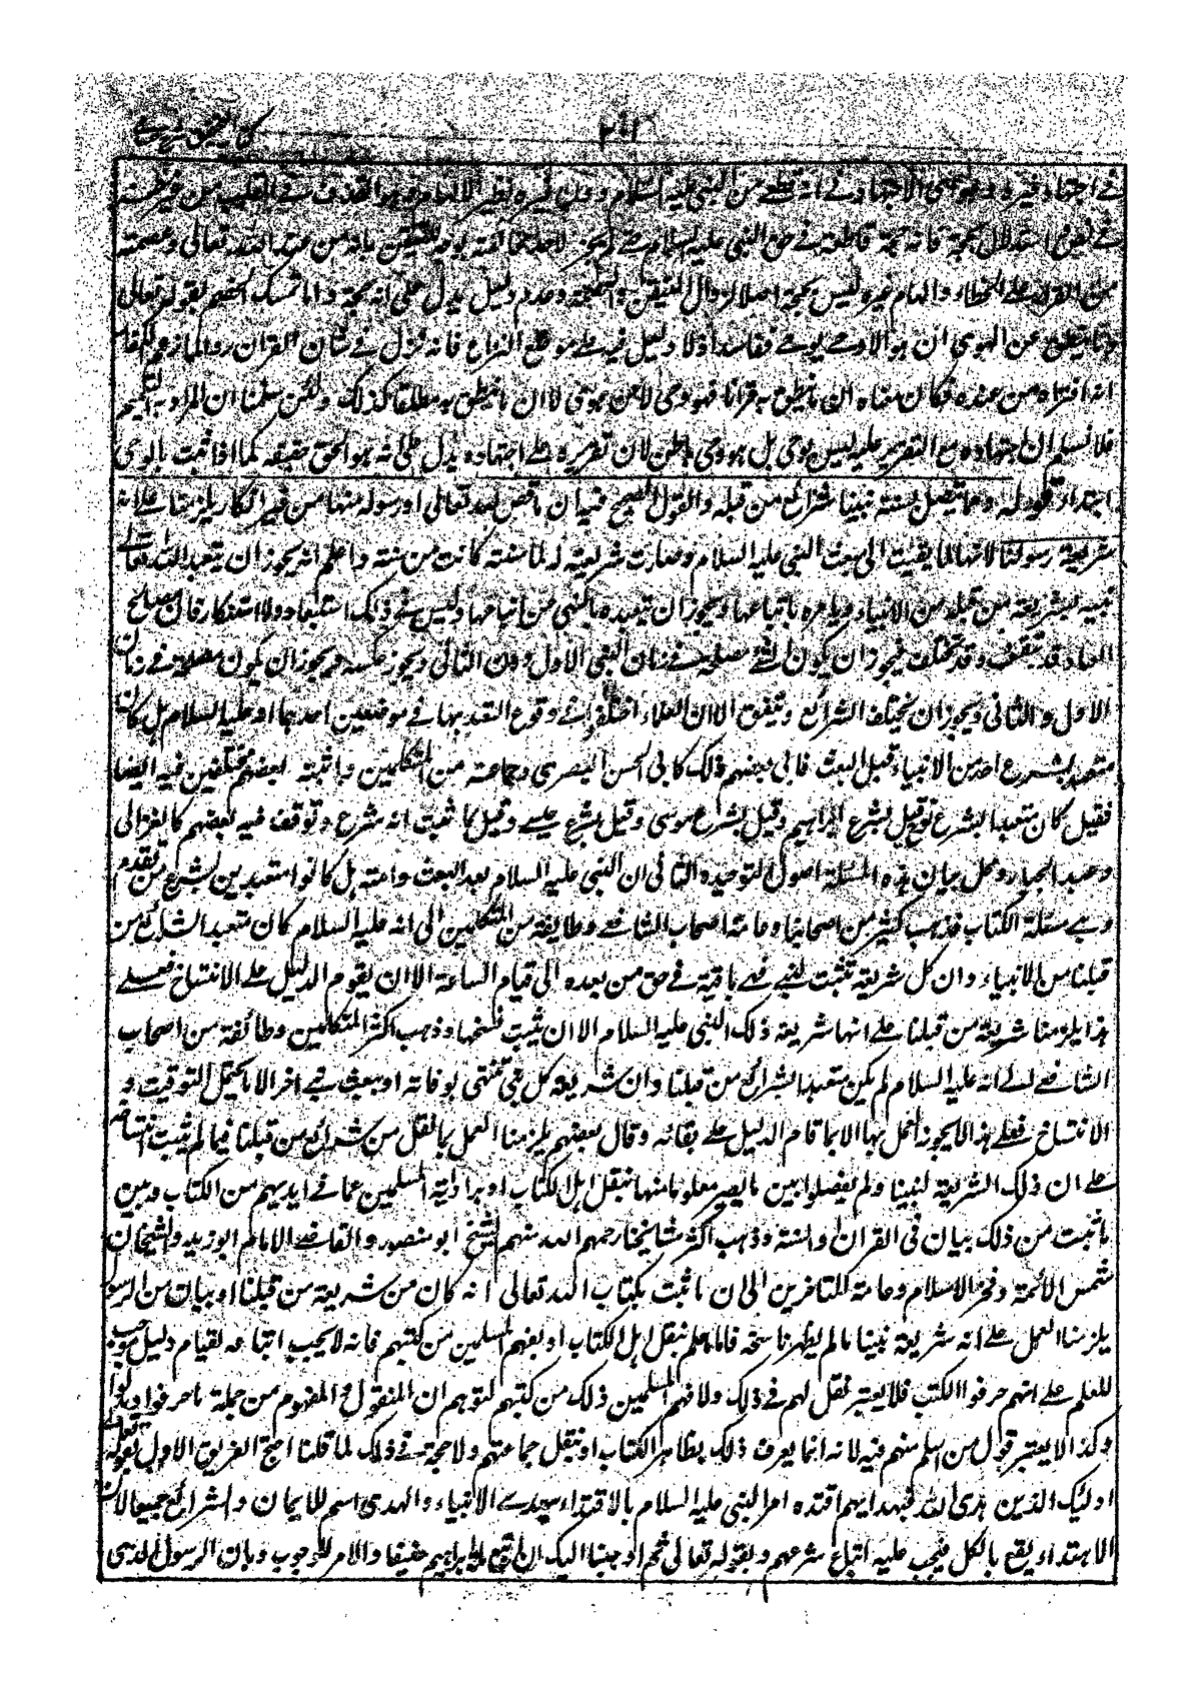 في اجتهاد غيره وهو اى الاجتهاد في انه قطعي من النبي عليه السلام دون غيره نظير الالهام وهو القذف في القلب من غير نظر
في استدلال بحجة فانه حجة قاطعة في حق النبي عليه السلام حتى لم يجز لاحد مخالفته بوجه للتيقن بانه من عند الله تعالى وعصمته
عن القرار على الخطاء والهام غيره ليس بحجة اصلا لزوال التيقن والعصمة وعدم دليل يدل على انه حجة واما تمسك الخصم بقوله تعالى
وما ينطق عن الهوى ان هو الا وحي يوحى ففاسد اذ لا دليل فيه على موضع النزاع فانه نزل في شان القران ردا لما زعم الكفار
انه افتراه من عنده فكان معناه ان ما ينطق به قرانا فهو وحي لا عن هوى لا ان ما ينطق به مطلقا كذلك ولئن سلمنا ان المراد به التعميم
فلا نسلم ان اجتهاده مع التقرير عليه ليس بوحى بل هو وحى باطن لان تقريره على اجتهاده يدل على انه هو الحق حقيقة كما اذا ثبت بالوحى
ابتداء قوله ومما يتصل بسنة نبينا شرائع من قبله والقول الصحيح فيه ان ما قص الله تعالى او رسوله منها من غير انكار يلزمنا على انه
شريعة رسولنا لانها لما بقيت الى مبعث النبي عليه السلام وصارت شريعة له لما سنته كانت من سنته واعلم انه يجوز ان يتعبد الله تعالى
نبيه بشريعة من قبله من الانبياء ويامره باتباعها ويجوز ان يتعبده بالنهى من اتباعها وليس في ذلك استبعاد ولا استنكار فان مصالح
العباد قد تتفق وقد تختلف فيجوز ان يكون الشئ مصلحة في زمان النبي الاول دون الثاني ويجوز عكسه ويجوز ان يكون مصلحة في زمان
الاول والثاني ويجوز ان تختلف الشرائع وتتفق الا ان العلماء اختلفوا في وقوع التعبد بها في موضعين احدهما انه عليه السلام هل كان
متعبدا بشرع احد من الانبياء قبل البعث فابى بعضهم ذلك كابى الحسن البصرى وجماعة من المتكلمين واثبته بعضهم مختلفين فيه ايضا
فقيل كان متعبدا بشرع نوح وقيل بشرع ابراهيم وقيل بشرع موسى وقيل بشرع عيسى وقيل بما ثبت انه شرع وتوقف فيه بعضهم كالغزالى
وعبد الجبار ومحل بيان هذه المسئلة اصول التوحيد والثانى ان النبي عليه السلام بعد البعث وامته هل كانوا متعبدين بشرع من تقدم
وهي مسئلة الكتاب فذهب كثير من اصحابنا وعامة اصحاب الشافعي وطايفة من المتكلمين الى انه عليه السلام كان متعبدا بشرائع من
قبلنا من الانبياء وان كل شريعة تثبت لنبي فهي باقية في حق من بعده الى قيام الساعة الا ان يقوم الدليل على الانتساخ فعلى
هذا يلزمنا شريعة من قبلنا على انها شريعة ذلك النبي عليه السلام الا ان ثبت نسخها وذهب اكثر المتكلمين وطائفة من اصحاب
الشافعي الى انه عليه السلام لم يكن متعبدا بشرائع من قبلنا وان شريعة كل نبي تنتهى بوفاته او ببعث نبي اخر الا ما يحتمل التوقيت و
الانتساخ فعلى هذا لا يجوز العمل بها الا بما قام الدليل على بقائه وقال بعضهم يلزمنا العمل بما نقل من شرائع من قبلنا فيما لم يثبت انتساخه
على ان ذلك الشريعة لنبينا ولم يفصلوا بين ما يصير معلوما منها بنقل اهل الكتاب او برواية المسلمين عما في ايديهم من الكتاب وبين
ما ثبت من ذلك ببيان في القران والسنة وذهب اكثر مشايخنا رحمهم الله منهم الشيخ ابو منصور والقاضى الامام ابو زيد والشيخان
شمس الائمة وفخر الاسلام وعامة المتاخرين الى ان ما ثبت بكتاب الله تعالى انه كان من شريعة من قبلنا او ببيان من الرسول
يلزمنا العمل على انه شريعة نبينا ما لم يظهر ناسخه فاما ما علم بنقل اهل الكتاب او بفهم المسلمين من كتبهم فانه لا يجب اتباعه لقيام دليل موجب
للعلم على انهم حرفوا الكتب فلا يعتبر نقلهم في ذلك ولا فهم المسلمين ذلك من كتبهم لتوهم ان المنقول او المفهوم من جملة ما حرفوا وبدلوا
وكذا لا يعتبر قول من اسلم منهم فيه لانه انما يعرف ذلك بظاهر الكتاب او بنقل جماعتهم ولا حجة في ذلك لما قلنا احتج الفريق الاول بقوله تعالى
اولئك الذين هدى الله فبهداهم اقتده امر النبي عليه السلام بالاقتداء بهدى الانبياء والهدى اسم للايمان والشرائع جميعا لان
الاهتداء يقع بالكل فيجب عليه اتباع شرعهم وبقوله تعالى ثم اوحينا اليك ان اتبع ملة ابراهيم حنيفا والامر للوجوب وبان الرسول الذى